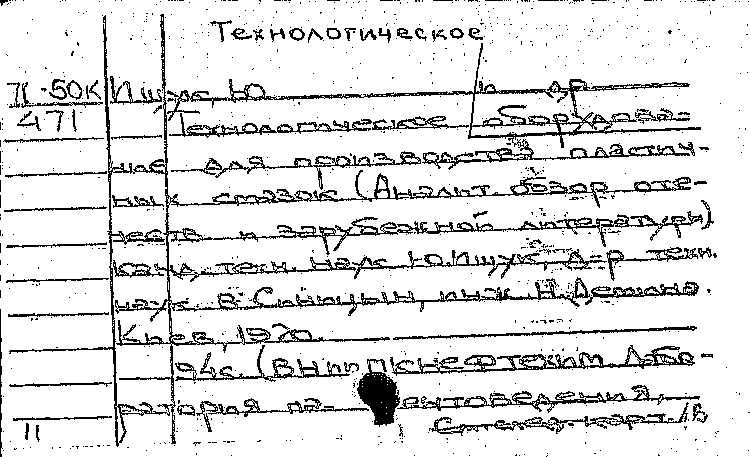 Технологическое
П-50К Ищук, Ю и др
471 Технологическое оборудова-
ние для производства пластич-
ных смазок (Аналит. обзор оте-
честв и зарубежной литературы)
Канд. техн. наук Ю.Ищук, д-р техн.
наук В. Синицын, инж Н. Демина.
Киев, 1970.
94с. (ВНИИПКнефтехим Лабо-
ратория па ентоведения,
11